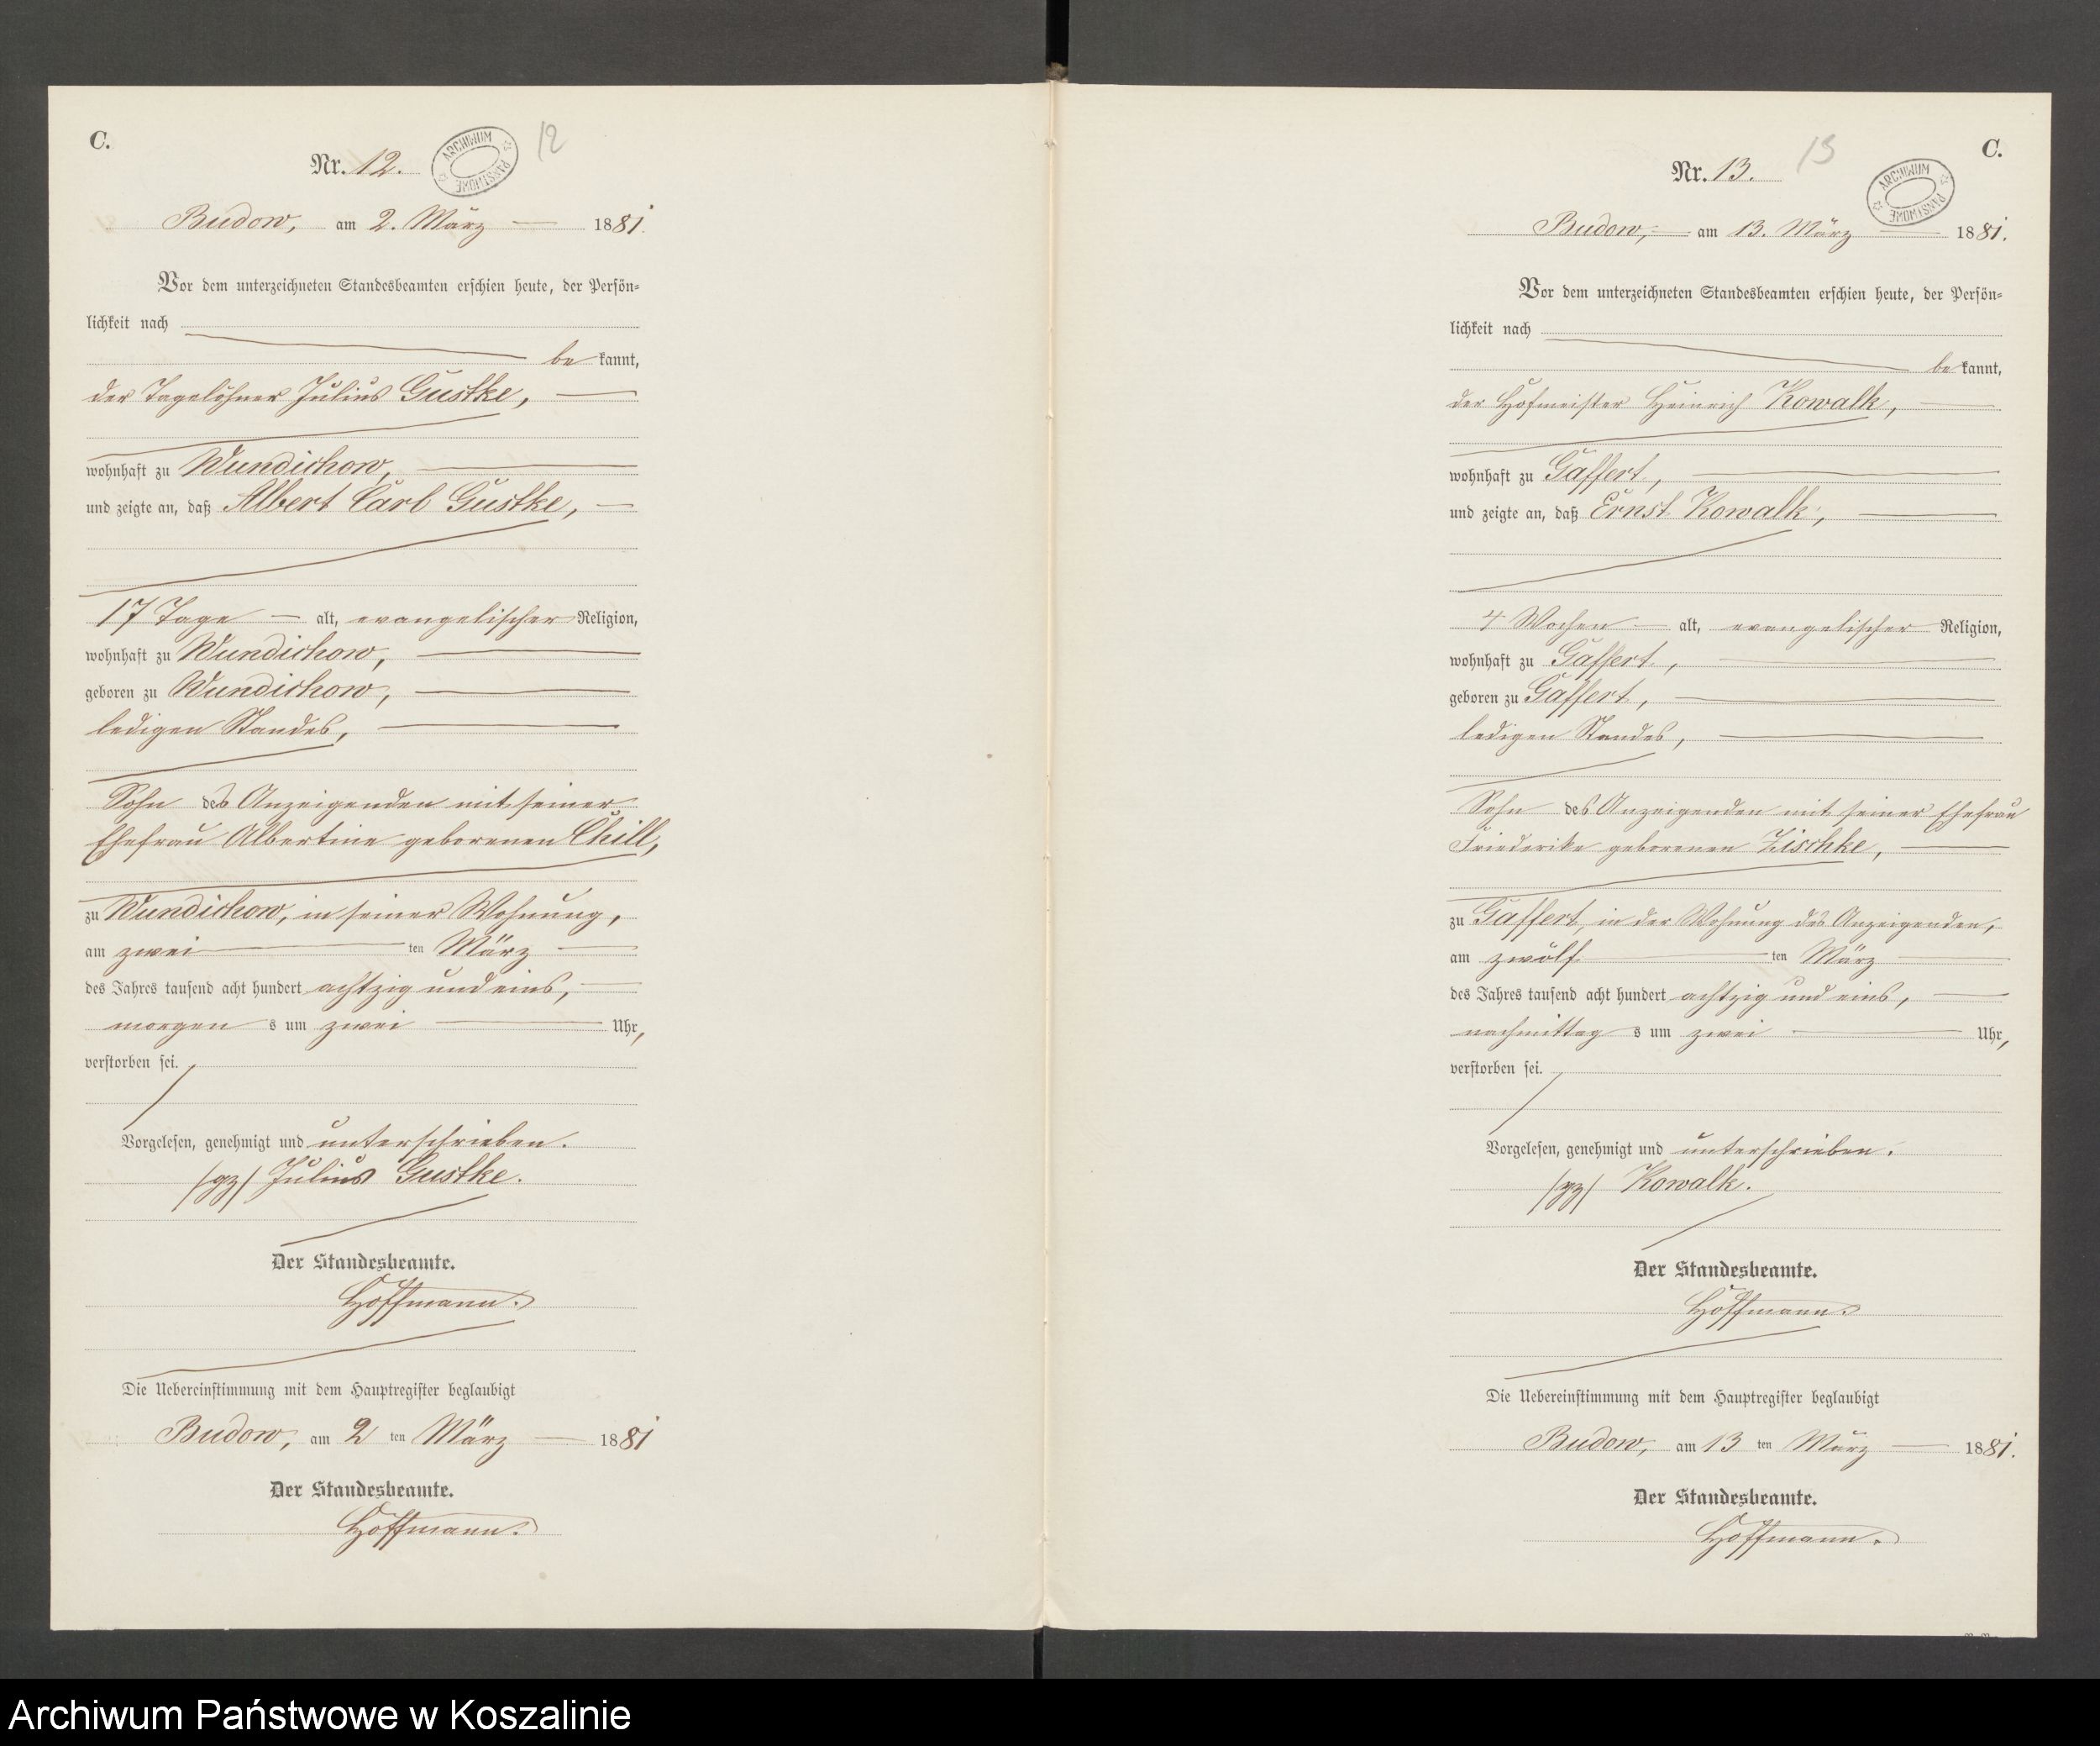 C.
Nr. 12.
ARCHIWUM PAŃSTWOWE
12
Budow, am 2. März 1881.
Vor dem unterzeichneten Standesbeamten erschien heute, der Persön=
lichkeit nach
be kannt,
der Tagelöhner Julius Gustke,
wohnhaft zu Wundichow,
und zeigte an, daß Albert Carl Gustke,
17 Tage alt, evangelischer Religion,
wohnhaft zu Wundichow,
geboren zu Wundichow,
ledigen Standes,
Sohn des Anzeigenden mit seiner
Ehefrau Albertine geborenen Chill,
zu Wundichow, in seiner Wohnung,
am zwei ten März
des Jahres tausend acht hundert achtzig und eins,
morgen s um zwei Uhr,
verstorben sei.
Vorgelesen, genehmigt und unterschrieben.
/gz/ Julius Gustke.
Der Standesbeamte.
Hoffmann.
Die Uebereinstimmung mit dem Hauptregister beglaubigt
Budow, am 2 ten März 1881
Der Standesbeamte.
Hoffmann.
C.
Nr. 13.
13
ARCHIWUM PAŃSTWOWE
Budow, am 13. März 1881.
Vor dem unterzeichneten Standesbeamten erschien heute, der Persön=
lichkeit nach
be kannt,
der Hofmeister Heinrich Kowalk,
wohnhaft zu Gaffert,
und zeigte an, daß Ernst Kowalk,
4 Wochen alt, evangelischer Religion,
wohnhaft zu Gaffert,
geboren zu Gaffert,
ledigen Standes,
Sohn des Anzeigenden mit seiner Ehefrau
Friederike geborenen Zischke,
zu Gaffert, in der Wohnung des Anzeigenden,
am zwölf ten März
des Jahres tausend acht hundert achtzig und eins,
nachmittag s um zwei Uhr,
verstorben sei.
Vorgelesen, genehmigt und unterschrieben.
/gz/ Kowalk.
Der Standesbeamte.
Hoffmann.
Die Uebereinstimmung mit dem Hauptregister beglaubigt
Budow, am 13 ten März 1881.
Der Standesbeamte.
Hoffmann.
Archiwum Państwowe w Koszalinie